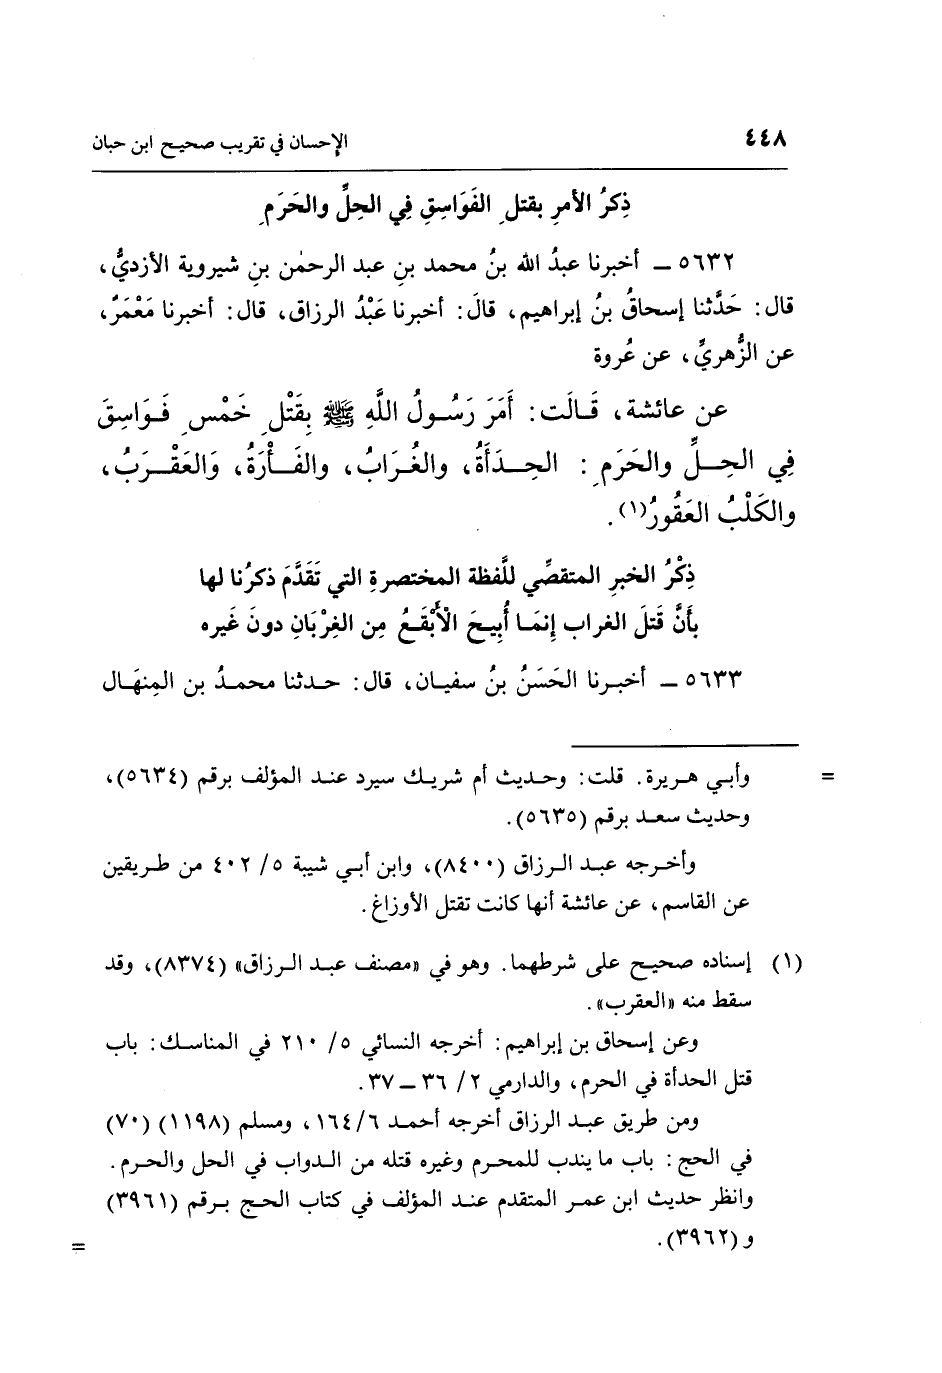 ٤٤٨
الإحسان في تقريب صحيح ابن حبان
ذِكرُ الأمرِ بقتلِ الفَوَاسِقِ فِي الحِلِّ والحَرَمِ
٥٦٣٢ ـ أخبرنا عبدُ الله بنُ محمد بنِ عبد الرحمٰن بنِ شيروية الأزديُّ،
قال: حَدَّثنا إسحاقُ بنُ إبراهيم، قالَ: أخبرنا عَبْدُ الرزاق، قال: أخبرنا مَعْمَرٌ،
عن الزُّهريِّ، عن عُروة
عن عائشة، قَالَت: أَمَرَ رَسُولُ اللَّهِ ﷺ بِقَتْلِ خَمْسِ فَوَاسِقَ
فِي الحِلِّ والحَرَمِ: الحِدَأَةُ، والغُرَابُ، والفَأْرَةُ، وَالعَقْرَبُ،
والكَلْبُ العَقُورُ(١).
ذِكْرُ الخبرِ المتقصِّي للَّفظة المختصرةِ التي تَقَدَّمَ ذكرُنا لها
بأنَّ قَتلَ الغراب إِنمَا أُبيحَ الْأَبْقَعُ مِن الغِرْبَانِ دونَ غَيره
٥٦٣٣ ـ أخبرنا الحَسَنُ بنُ سفيان، قال: حدثنا محمدُ بن المِنهَال
= وأبي هريرة. قلت: وحديث أم شريك سيرد عند المؤلف برقم (٥٦٣٤)،
وحديث سعد برقم (٥٦٣٥).
وأخرجه عبد الرزاق (٨٤٠٠)، وابن أبي شيبة ٥/ ٤٠٢ من طريقين
عن القاسم، عن عائشة أنها كانت تقتل الأوزاغ.
(١) إسناده صحيح على شرطهما. وهو في «مصنف عبد الرزاق» (٨٣٧٤)، وقد
سقط منه «العقرب».
وعن إسحاق بن إبراهيم: أخرجه النسائي ٥/ ٢١٠ في المناسك: باب
قتل الحدأة في الحرم، والدارمي ٢/ ٣٦ ـ ٣٧.
ومن طريق عبد الرزاق أخرجه أحمد ١٦٤/٦، ومسلم (١١٩٨) (٧٠)
في الحج: باب ما يندب للمحرم وغيره قتله من الدواب في الحل والحرم.
وانظر حديث ابن عمر المتقدم عند المؤلف في كتاب الحج برقم (٣٩٦١)
و (٣٩٦٢). =